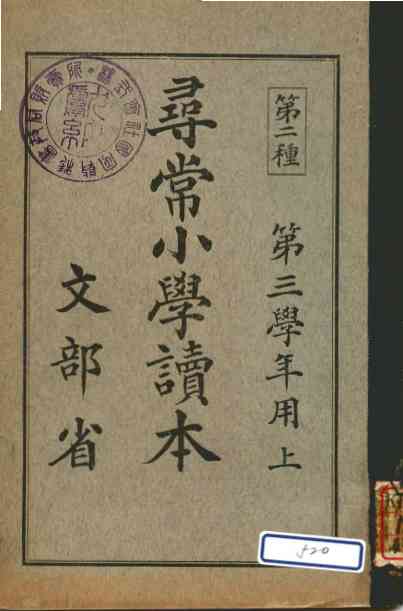 第二種
第三學年用上
尋常小學讀本
文部省
520